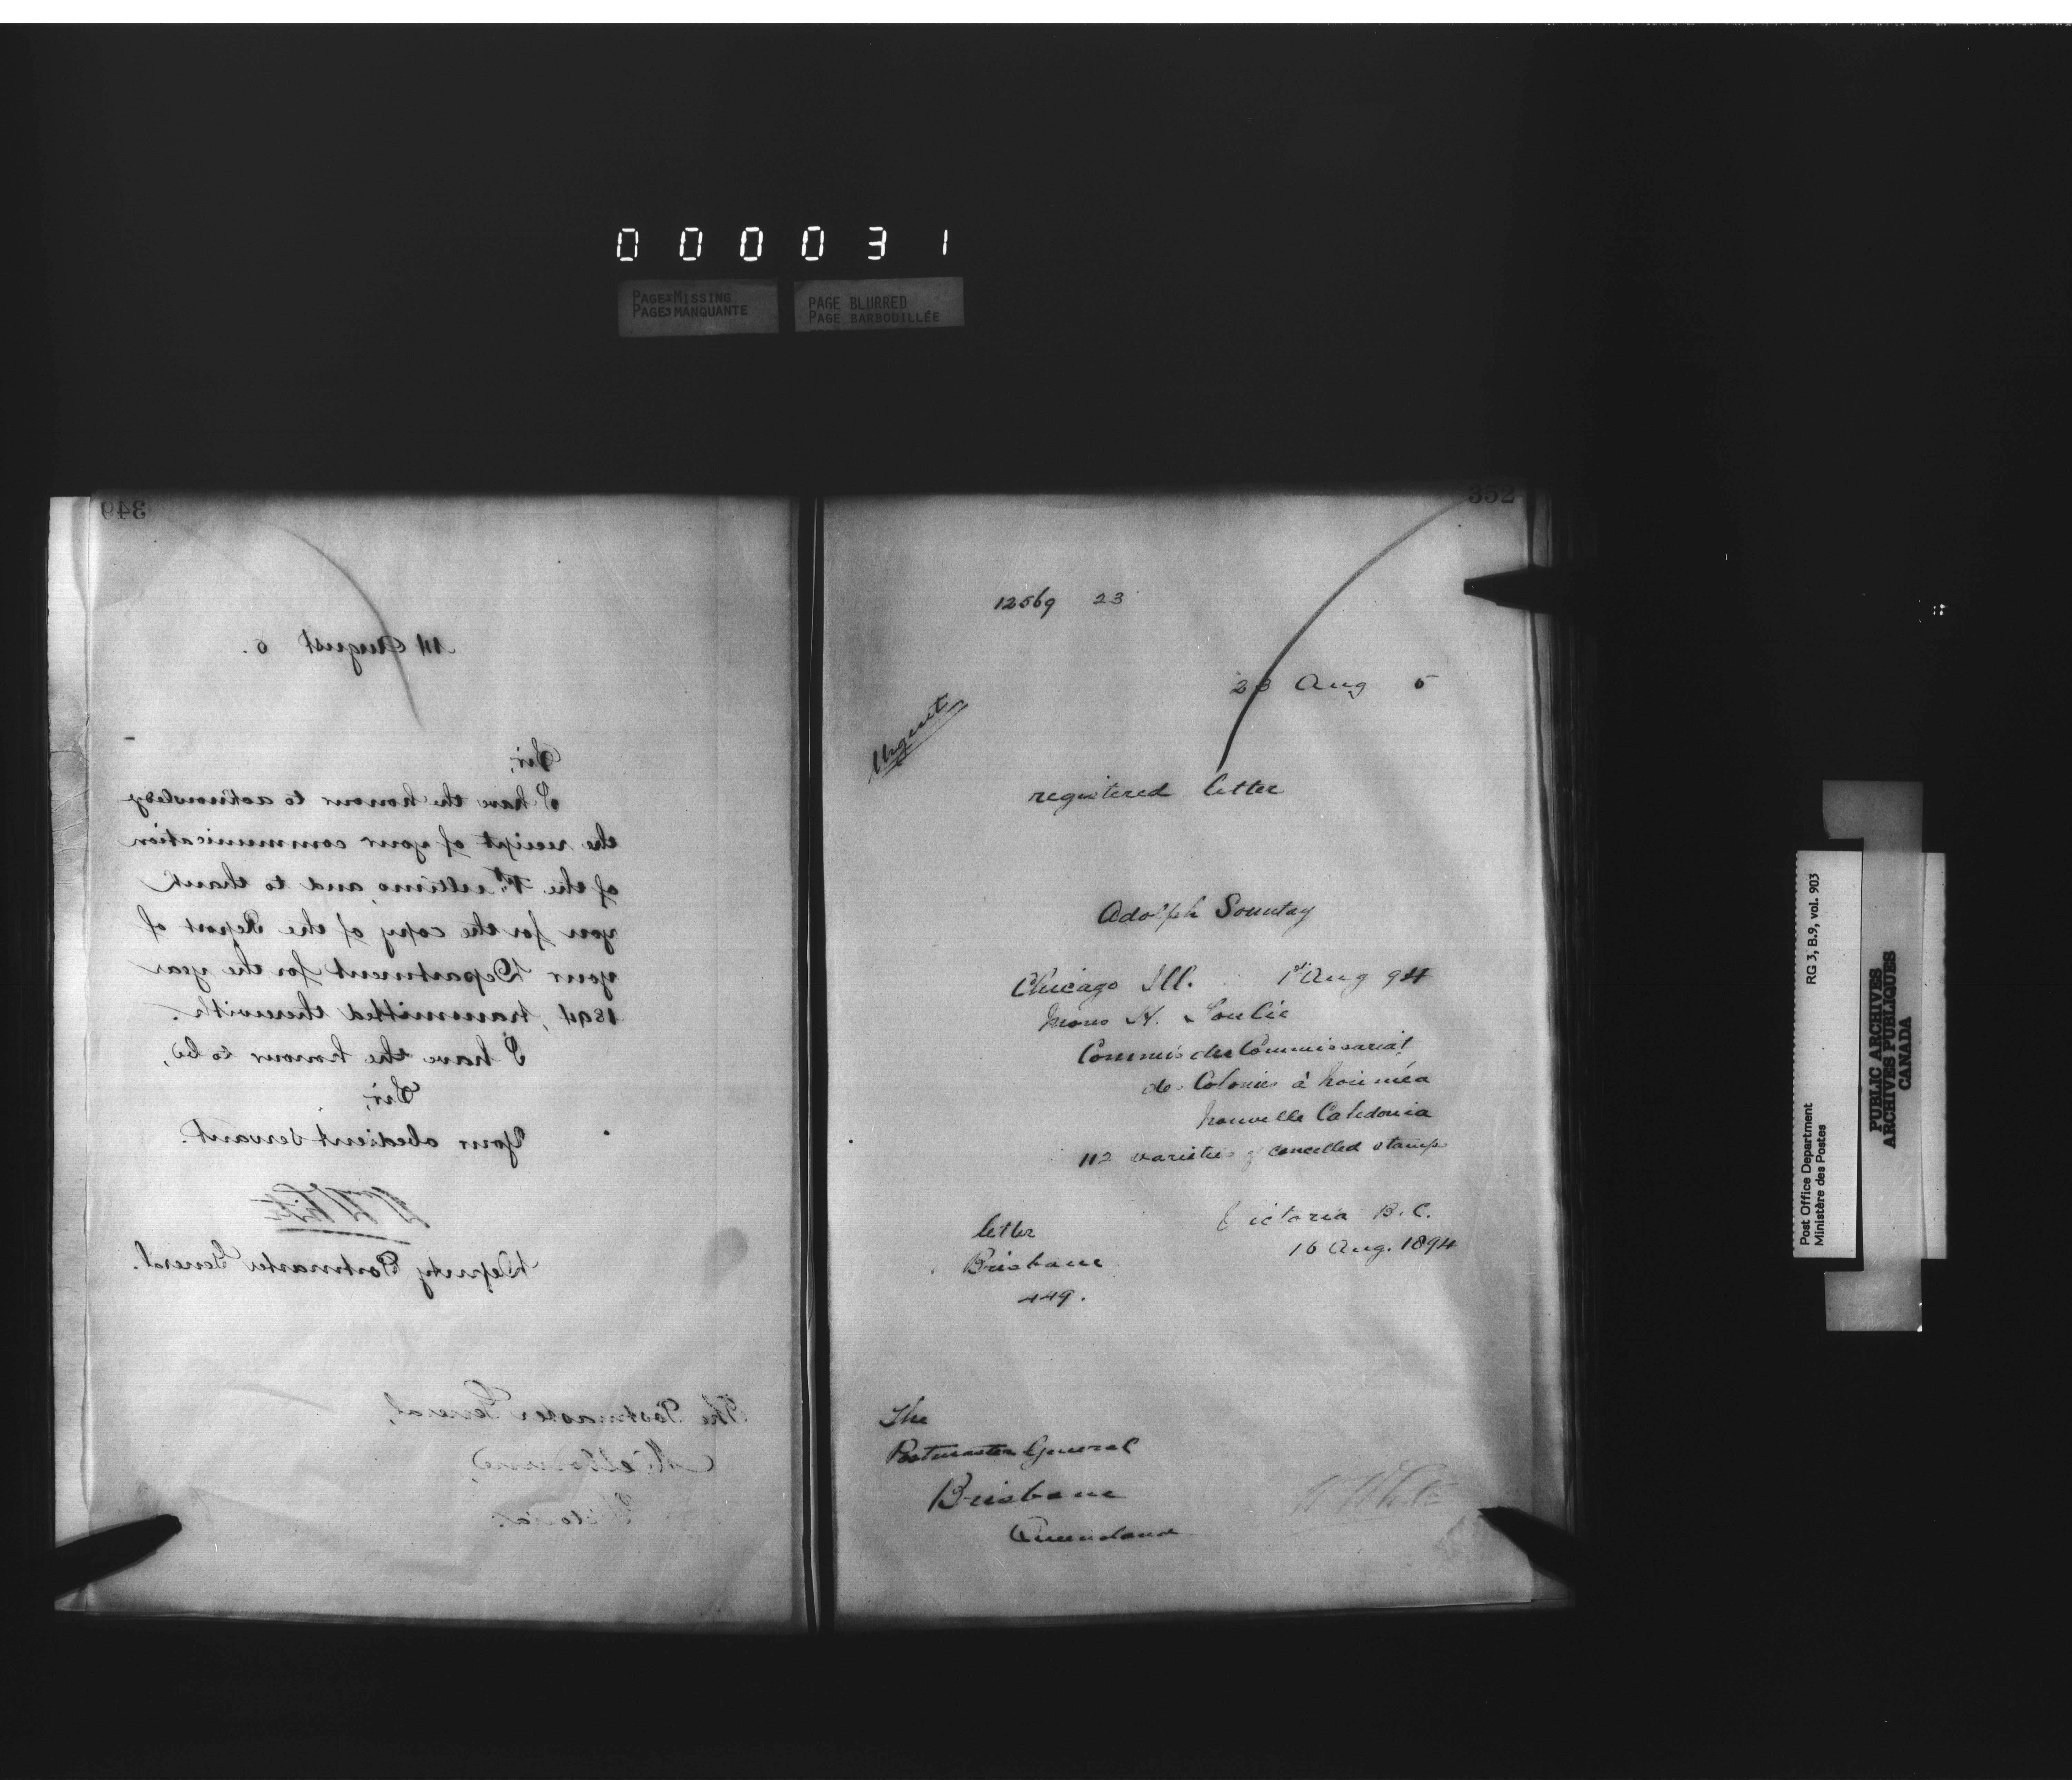 0 0 0 0 3 1
PAGES MISSING
PAGES MANQUANTE
PAGE BLURRED
PAGE BARBOUILLÉE
349
14 August 5.
Sir,
I have the honour to acknowledge
the receipt of your communication
of the ultimo, and to thank
you for the copy of the Report of
your Department for the year
1894, transmitted therewith.
I have the honour to be,
Sir,
Your obedient servant.
Wm White
Deputy Postmaster General.
The Postmaster General,
Melbourne,
Victoria.
352
12569 23
23 Aug 5
Urgent
registered letter
Adolph Sountag
Chicago Ill. 1st Aug 94
Mons H. Soulié
Commis des Commissariat
de Colonies à Nouméa
Nouvelle Caledonia
112 varieties of cancelled stamps
Victoria B.C.
16 Aug. 1894
letter
Brisbane
449.
The
Postmaster General
Brisbane
Queensland
W White
Post Office Department
Ministère des Postes
RG 3, B.9, vol. 903
PUBLIC ARCHIVES
ARCHIVES PUBLIQUES
CANADA